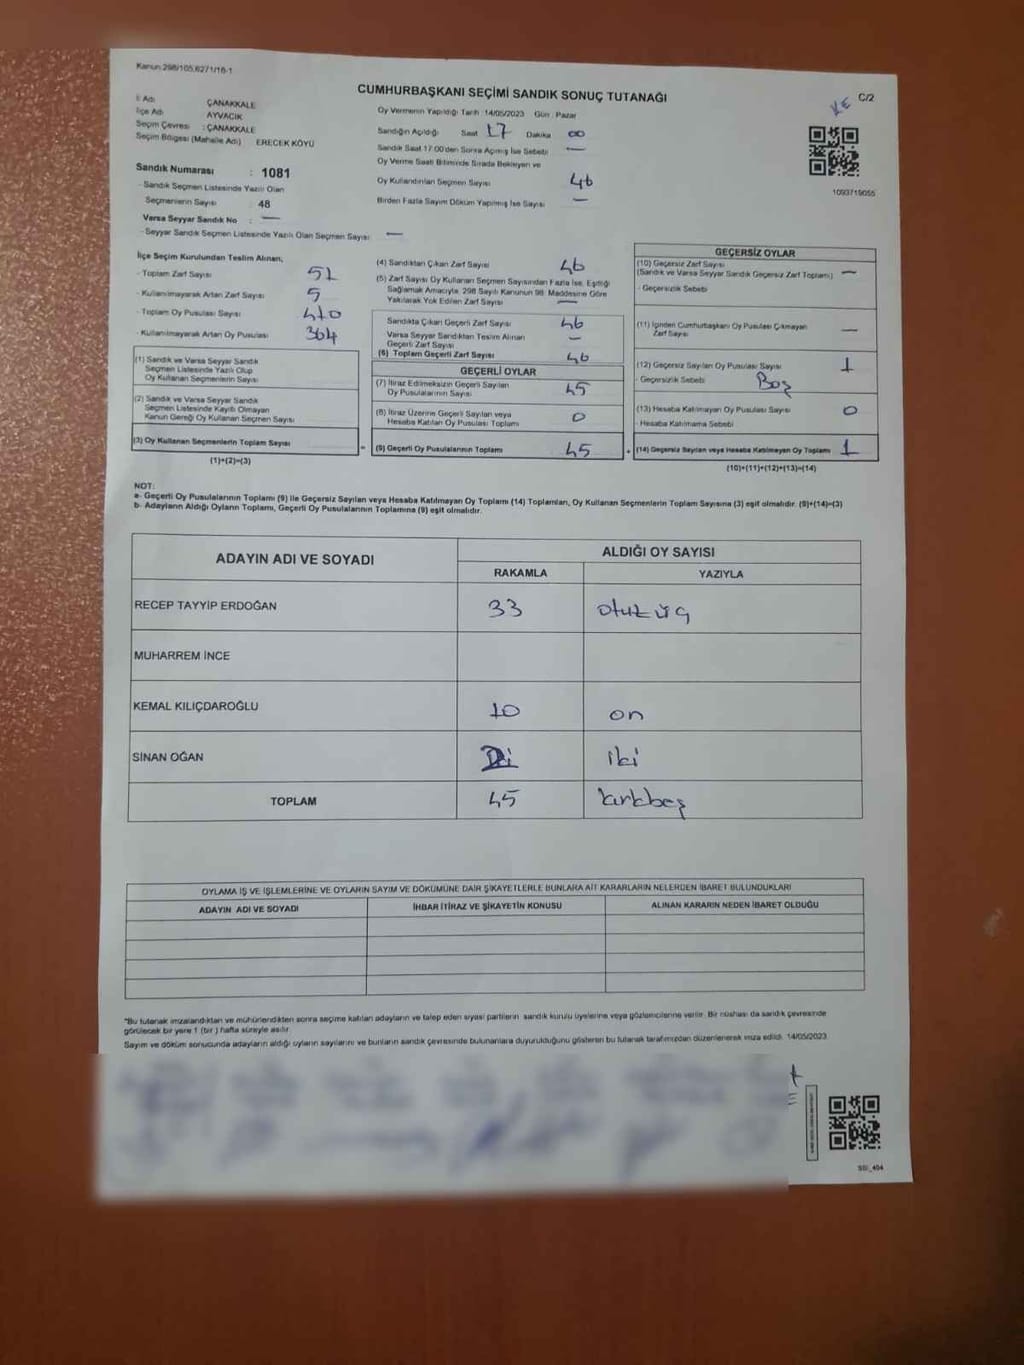 Kanun 298/105,6271/16-1
CUMHURBAŞKANI SEÇİMİ SANDIK SONUÇ TUTANAĞI
C/2
İl Adı ÇANAKKALE
İlçe Adı AYVACIK
Seçim Çevresi : ÇANAKKALE
Seçim Bölgesi (Mahalle Adı) ERECEK KÖYÜ
Sandık Numarası : 1081
- Sandık Seçmen Listesinde Yazılı Olan
Seçmenlerin Sayısı 48
Varsa Seyyar Sandık No : —
- Seyyar Sandık Seçmen Listesinde Yazılı Olan Seçmen Sayısı —
Oy Vermenin Yapıldığı Tarih 14/05/2023 Gün : Pazar
Sandığın Açıldığı Saat 17 Dakika 00
Sandık Saat 17:00'den Sonra Açılmış İse Sebebi —
Oy Verme Saati Bitiminde Sırada Bekleyen ve
Oy Kullandırılan Seçmen Sayısı 46
Birden Fazla Sayım Döküm Yapılmış İse Sayısı —
1093719055
İlçe Seçim Kurulundan Teslim Alınan,
- Toplam Zarf Sayısı 51
- Kullanılmayarak Artan Zarf Sayısı 5
- Toplam Oy Pusulası Sayısı 410
- Kullanılmayarak Artan Oy Pusulası 364
(1) Sandık ve Varsa Seyyar Sandık
Seçmen Listesinde Yazılı Olup
Oy Kullanan Seçmenlerin Sayısı
(2) Sandık ve Varsa Seyyar Sandık
Seçmen Listesinde Kayıtlı Olmayan
Kanun Gereği Oy Kullanan Seçmen Sayısı
(3) Oy Kullanan Seçmenlerin Toplam Sayısı
(1)+(2)=(3)
(4) Sandıktan Çıkan Zarf Sayısı 46
(5) Zarf Sayısı Oy Kullanan Seçmen Sayısından Fazla İse, Eşitliği
Sağlamak Amacıyla, 298 Sayılı Kanunun 98. Maddesine Göre
Yakılarak Yok Edilen Zarf Sayısı —
Sandıkta Çıkan Geçerli Zarf Sayısı 46
Varsa Seyyar Sandıktan Teslim Alınan
Geçerli Zarf Sayısı —
(6) Toplam Geçerli Zarf Sayısı 46
GEÇERLİ OYLAR
(7) İtiraz Edilmeksizin Geçerli Sayılan
Oy Pusulalarının Sayısı 45
(8) İtiraz Üzerine Geçerli Sayılan veya
Hesaba Katılan Oy Pusulası Toplamı 0
= (9) Geçerli Oy Pusulalarının Toplamı 45
GEÇERSİZ OYLAR
(10) Geçersiz Zarf Sayısı
(Sandık ve Varsa Seyyar Sandık Geçersiz Zarf Toplamı) —
- Geçersizlik Sebebi
(11) İçinden Cumhurbaşkanı Oy Pusulası Çıkmayan
Zarf Sayısı —
(12) Geçersiz Sayılan Oy Pusulası Sayısı 1
- Geçersizlik Sebebi Boş
(13) Hesaba Katılmayan Oy Pusulası Sayısı 0
- Hesaba Katılmama Sebebi
+ (14) Geçersiz Sayılan veya Hesaba Katılmayan Oy Toplamı 1
(10)+(11)+(12)+(13)=(14)
NOT:
a- Geçerli Oy Pusulalarının Toplamı (9) ile Geçersiz Sayılan veya Hesaba Katılmayan Oy Toplamı (14) Toplamları, Oy Kullanan Seçmenlerin Toplam Sayısına (3) eşit olmalıdır. (9)+(14)=(3)
b- Adayların Aldığı Oyların Toplamı, Geçerli Oy Pusulalarının Toplamına (9) eşit olmalıdır.
ADAYIN ADI VE SOYADI ALDIĞI OY SAYISI
RAKAMLA YAZIYLA
RECEP TAYYİP ERDOĞAN 33 otuz üç
MUHARREM İNCE
KEMAL KILIÇDAROĞLU 10 on
SİNAN OĞAN iki
TOPLAM 45 kırkbeş
OYLAMA İŞ VE İŞLEMLERİNE VE OYLARIN SAYIM VE DÖKÜMÜNE DAİR ŞİKAYETLERLE BUNLARA AİT KARARLARIN NELERDEN İBARET BULUNDUKLARI
ADAYIN ADI VE SOYADI İHBAR İTİRAZ VE ŞİKAYETİN KONUSU ALINAN KARARIN NEDEN İBARET OLDUĞU
"Bu tutanak imzalandıktan ve mühürlendikten sonra seçime katılan adayların ve talep eden siyasi partilerin sandık kurulu üyelerine veya gözlemcilerine verilir. Bir nüshası da sandık çevresinde
görülecek bir yere 1 (bir ) hafta süreyle asılır.
Sayım ve döküm sonucunda adayların aldığı oyların sayılarını ve bunların sandık çevresinde bulunanlara duyurulduğunu gösteren bu tutanak tarafımızdan düzenlenerek imza edildi. 14/05/2023